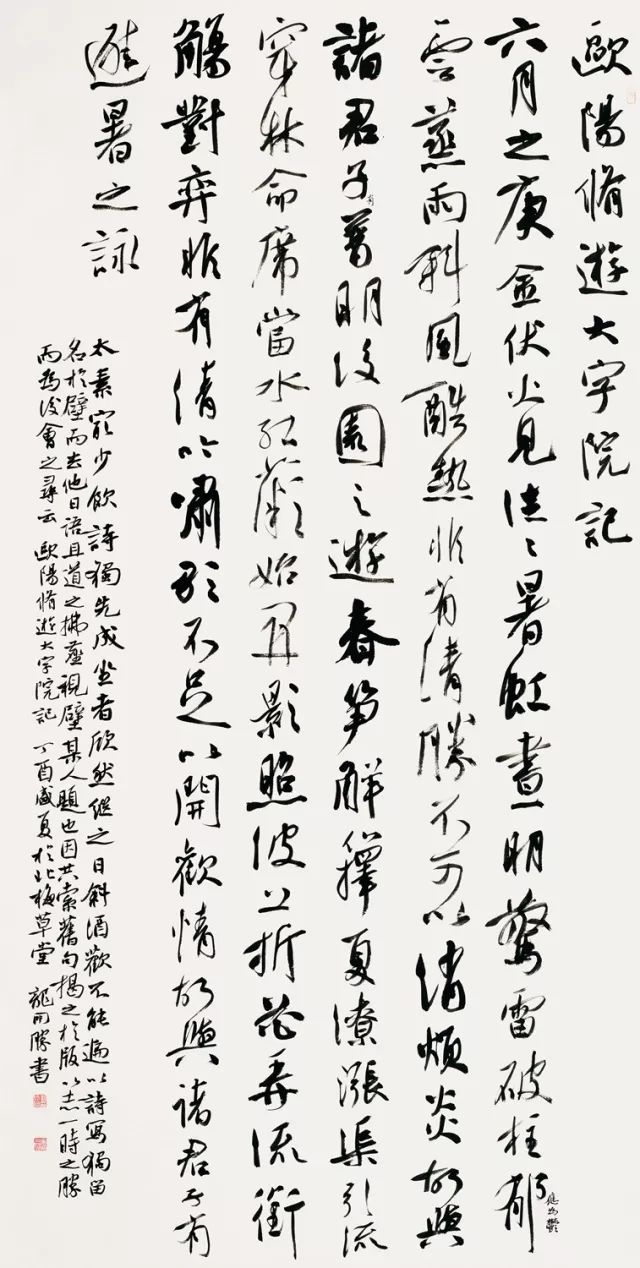 歐陽脩遊大字院記
六月之庚金伏火見往々暑虹晝明驚雷破柱郁
應為鬱
雲蒸雨斜風酷熱非有清勝不可以消煩炎故與
諸君子有普明後園之遊春筍解籜夏潦漲渠引流
穿林命席當水紅薇始開影照波上折花弄流銜
觴對弈非有清吟嘯歌不足以開歡情故與諸君子有
避暑之詠
太素最少飲詩獨先成坐者欣然繼之日斜酒歡不能遍以詩寫獨留
名於壁而去他日語且道之拂塵視壁某人題也因共索舊句揭之於版以志一時之勝
而為後會之尋云 歐陽脩遊大字院記 丁酉盛夏於北梅草堂 龍開勝書